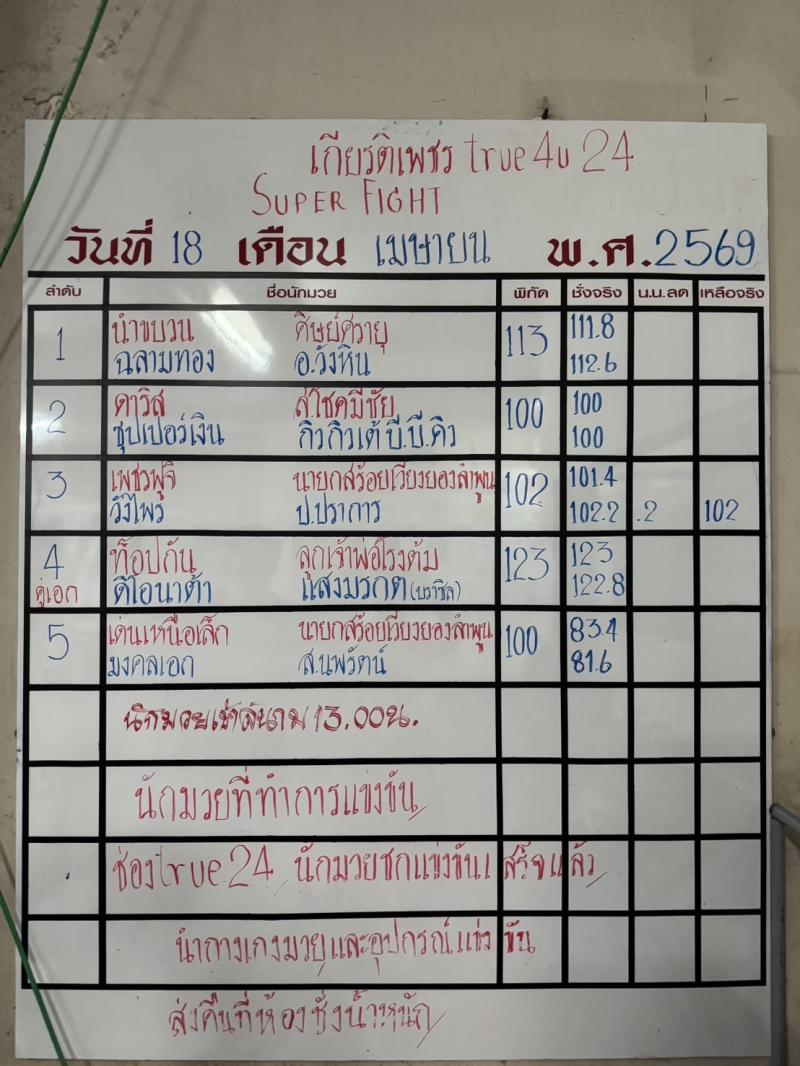 เกียรติเพชร true4u 24
SUPER FIGHT
วันที่ 18 เดือน เมษายน พ.ศ.2569
ลำดับ ชื่อนักมวย พิกัด ชั่งจริง น.น.ลด เหลือจริง
1 นำขบวน ศิษย์ศรายุ 113 111.8
ฉลามทอง อ.วังหิน 112.6
2 ดาวิส ส.โชคมีชัย 100 100
ซุปเปอร์เงิน กิวกิวเต้ บี.บี.คิว 100
3 เพชรฟูจิ นายกสร้อยเวียงยองลำพูน 102 101.4
วังไพร ป.ปราการ 102.2 .2 102
4 ท็อปกัน ลูกเจ้าพ่อโรงต้ม 123 123
คู่เอก ดิไอนาต้า แสงมรกต (บราซิล) 122.8
5 เด่นเหนือเล็ก นายกสร้อยเวียงยองลำพูน 100 83.4
มงคลเอก ส.นพรัตน์ 81.6
นักมวยเข้าสนาม 13.00น.
นักมวยที่ทำการแข่งขัน
ช่องtrue24 นักมวยชกแข่งขันเสร็จแล้ว
นำกางเกงมวยและอุปกรณ์แข่งขัน
ส่งคืนที่ห้องชั่งน้ำหนัก